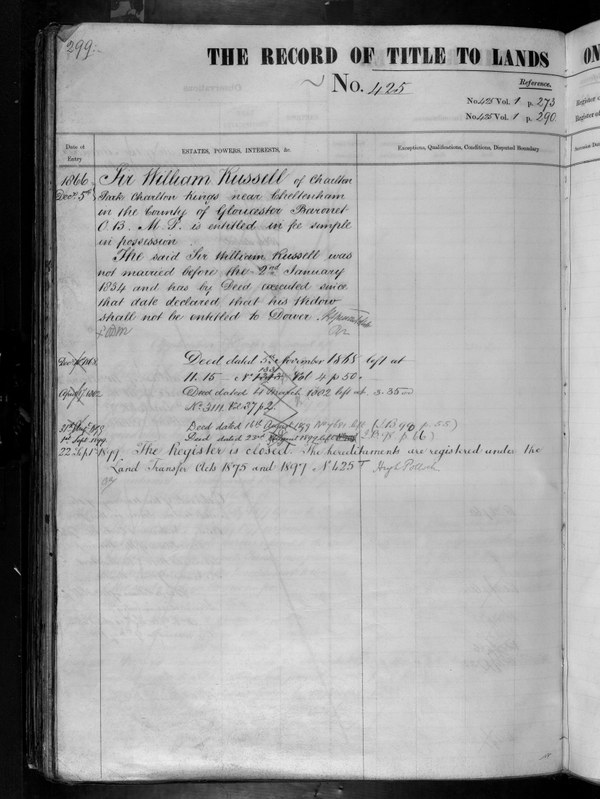 299.
THE RECORD OF TITLE TO LANDS
ON
No. 425
Reference.
No. 425 Vol. 1 p. 273
No. 425 Vol. 1 p. 290
Date of Entry
ESTATES, POWERS, INTERESTS, &c.
Exceptions, Qualifications, Conditions, Disputed Boundary
1866 Sir William Russell of Charlton
Decr 5th Park Charlton Kings near Cheltenham
in the County of Gloucester Baronet
C.B. M.P. is entitled in fee simple
in possession.
The said Sir William Russell was
not married before the 2nd January
1834 and has by Deed executed since
that date declared that his Widow
shall not be entitled to Dower.
Deed dated November 1868 left at
11.15 Vol 4 p 50.
Deed dated March 1882 left at 3.35
No. 3111 Vol 27 p 2
Deed dated 16th August 1899 left
1st Sept 1899 Deed dated 22nd August 1899 left
22 Sept 1899. The Register is closed The hereditaments are registered under the
Land Transfer Acts 1875 and 1897 No 425 Hugh Pollock